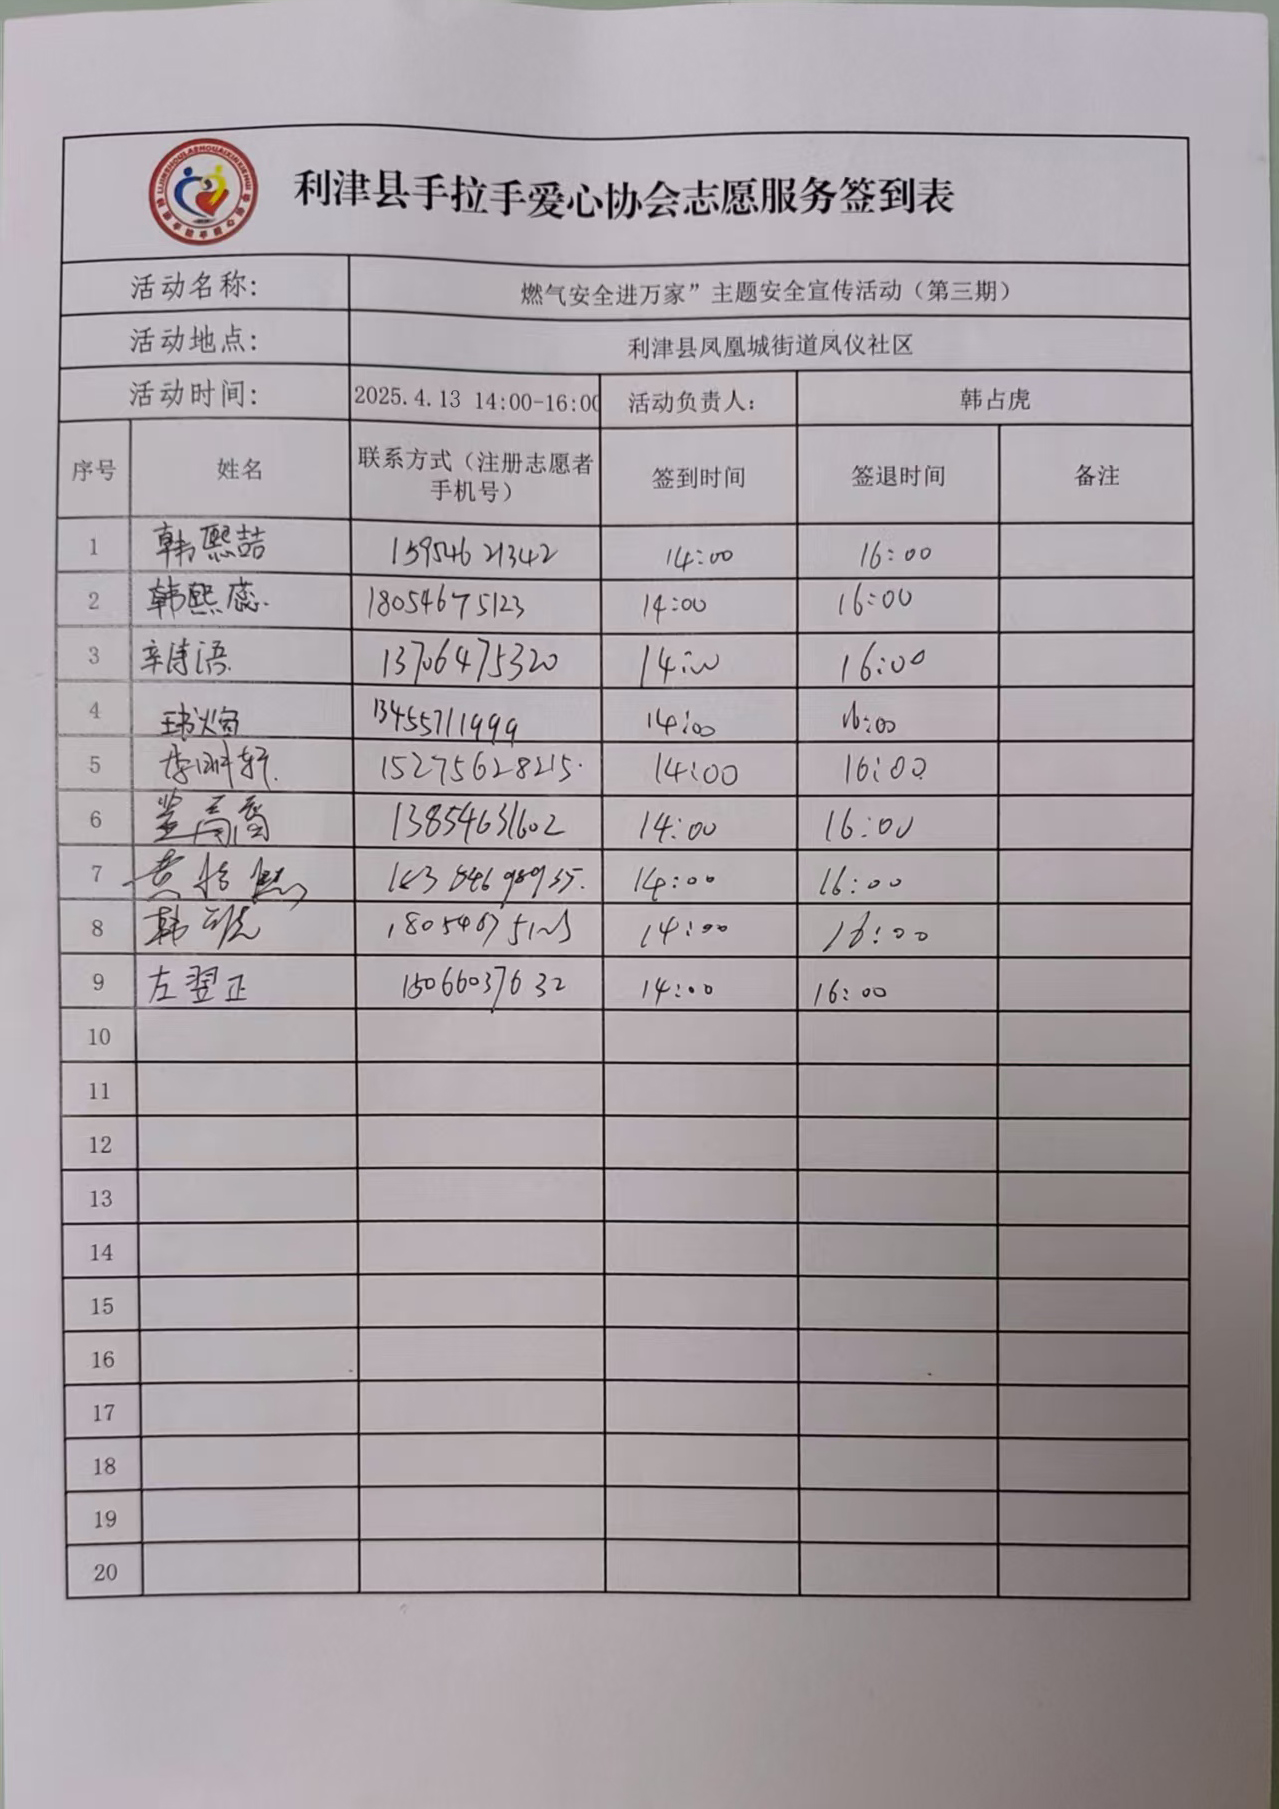 利津县手拉手爱心协会志愿服务签到表
活动名称: 燃气安全进万家”主题安全宣传活动（第三期）
活动地点: 利津县凤凰城街道凤仪社区
活动时间: 2025.4.13 14:00-16:00 活动负责人: 韩占虎
序号 姓名 联系方式（注册志愿者手机号） 签到时间 签退时间 备注
1 韩熙喆 15954621342 14:00 16:00
2 韩熙蕊 18054675123 14:00 16:00
3 辛诗语 13706475320 14:00 16:00
4 13455711999 14:00 16:00
5 15275628215 14:00 16:00
6 13854631602 14:00 16:00
7 14:00 16:00
8 韩占虎 18054675123 14:00 16:00
9 左翌正 15066037632 14:00 16:00
10
11
12
13
14
15
16
17
18
19
20